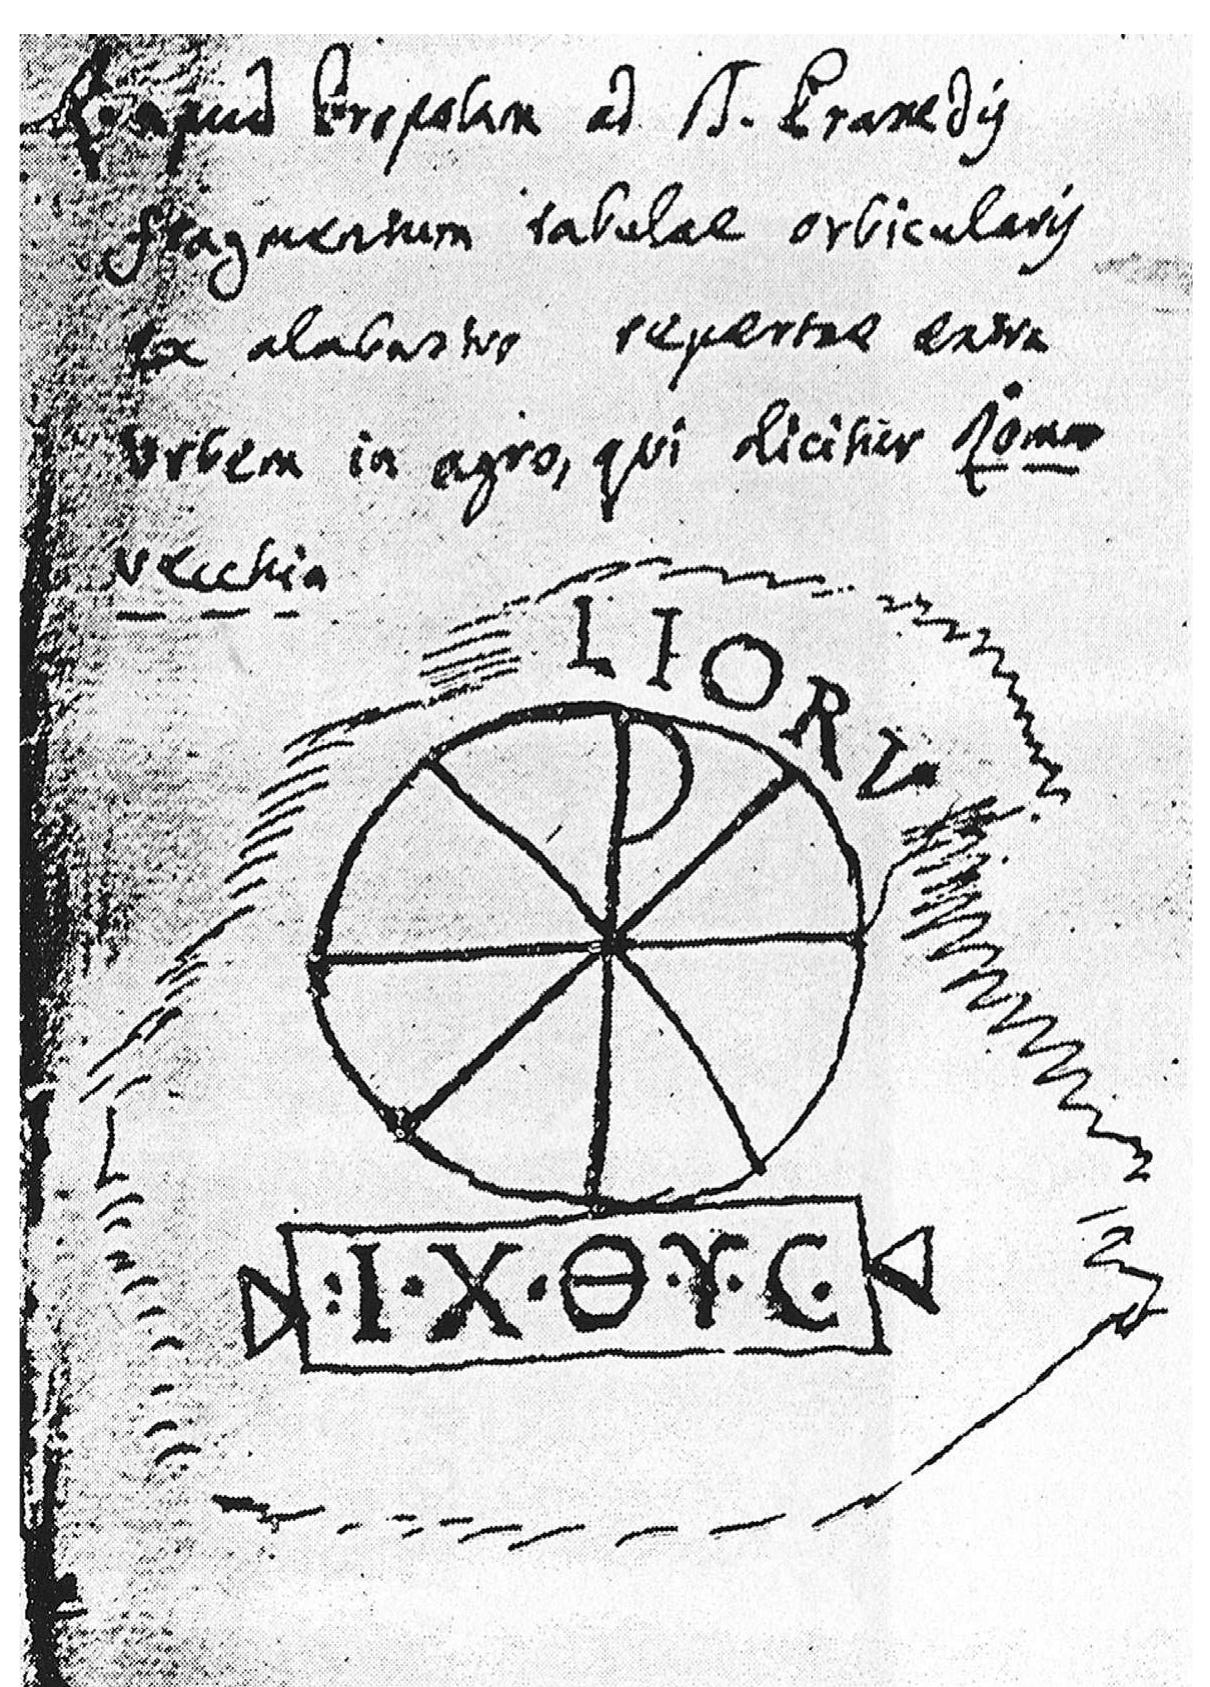 apud Propolam ad S. Praxedis
fragmentum tabulae orbicularis
ex alabastro repertae extra
urbem in agro, qui dicitur Roma
vecchia
LIORV
:Ι·Χ·Θ·Υ·Ϲ·